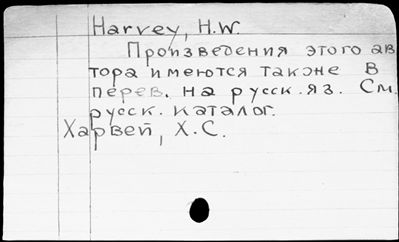 Harvey, H.W.
Произведения этого ав
тора имеются также в
перев. на русск. яз. См.
русск. каталог.
Харвей, Х.С.